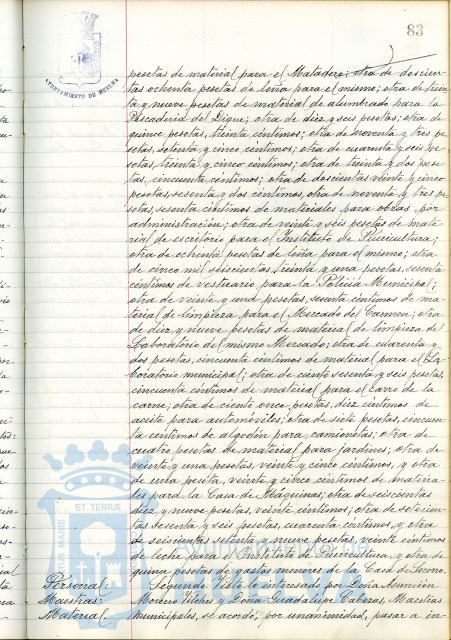 83
AYUNTAMIENTO DE HUELVA
pesetas de material para el Matadero; otra de descien-
tas ochenta pesetas de leña para el mismo; otra de trein
ta y nueve pesetas de material de alumbrado para la
Pescadería del Dique; otra de diez y seis pesetas; otra de
quince pesetas, treinta céntimos; otra de noventa y tres pe
setas, setenta y cinco céntimos; otra de cuarenta y seis pe
setas, treinta y cinco céntimos; otra de treinta y dos pese
tas, cincuenta céntimos; otra de doscientas veinte y cinco
pesetas, sesenta y dos céntimos, otra de noventa y tres pe
setas, sesenta céntimos de materiales para obras por
administración; otra de veinte y seis pesetas de mate-
rial de escritorio para el Instituto de Puericultura;
otra de ochenta pesetas de leña para el mismo; otra
de cinco mil seiscientas treinta y una pesetas, sesenta
céntimos de vestuario para la Policía Municipal;
otra de veinte y una pesetas, sesenta céntimos de ma-
terial de limpieza para el Mercado del Carmen; otra
de diez y nueve pesetas de material de limpieza del
Laboratorio del mismo Mercado; otra de cuarenta y
dos pesetas, cincuenta céntimos de material para el La-
boratorio municipal; otra de ciento sesenta y seis pesetas,
cincuenta céntimos de material para el carro de la
carne; otra de ciento once pesetas, diez céntimos de
aceite para automóviles; otra de siete pesetas, cincuen
ta céntimos de algodón para camionetas; otra de
cuatro pesetas de material para jardines; otra de
veinte y una pesetas, veinte y cinco céntimos, y otra
de una peseta, veinte y cinco céntimos de materia-
les para la Casa de Máquinas; otra de seiscientas
diez y nueve pesetas, veinte céntimos; otra de setecien-
tas sesenta y seis pesetas, cuarenta céntimos, y otra
de seiscientas setenta y nueve pesetas, veinte céntimos
de leche para el Instituto de Puericultura, y otra de
quince pesetas de gastos menores de la Casa de Socorro.
Personal: Segundo. Visto lo interesado por Doña Asunción
Maestras: Moreno Vilches y Doña Guadalupe Cabezas, Maestras
Material. Municipales, se acordó, por unanimidad, pasar a in-
ET TERRÆ
PORTUS MARIS